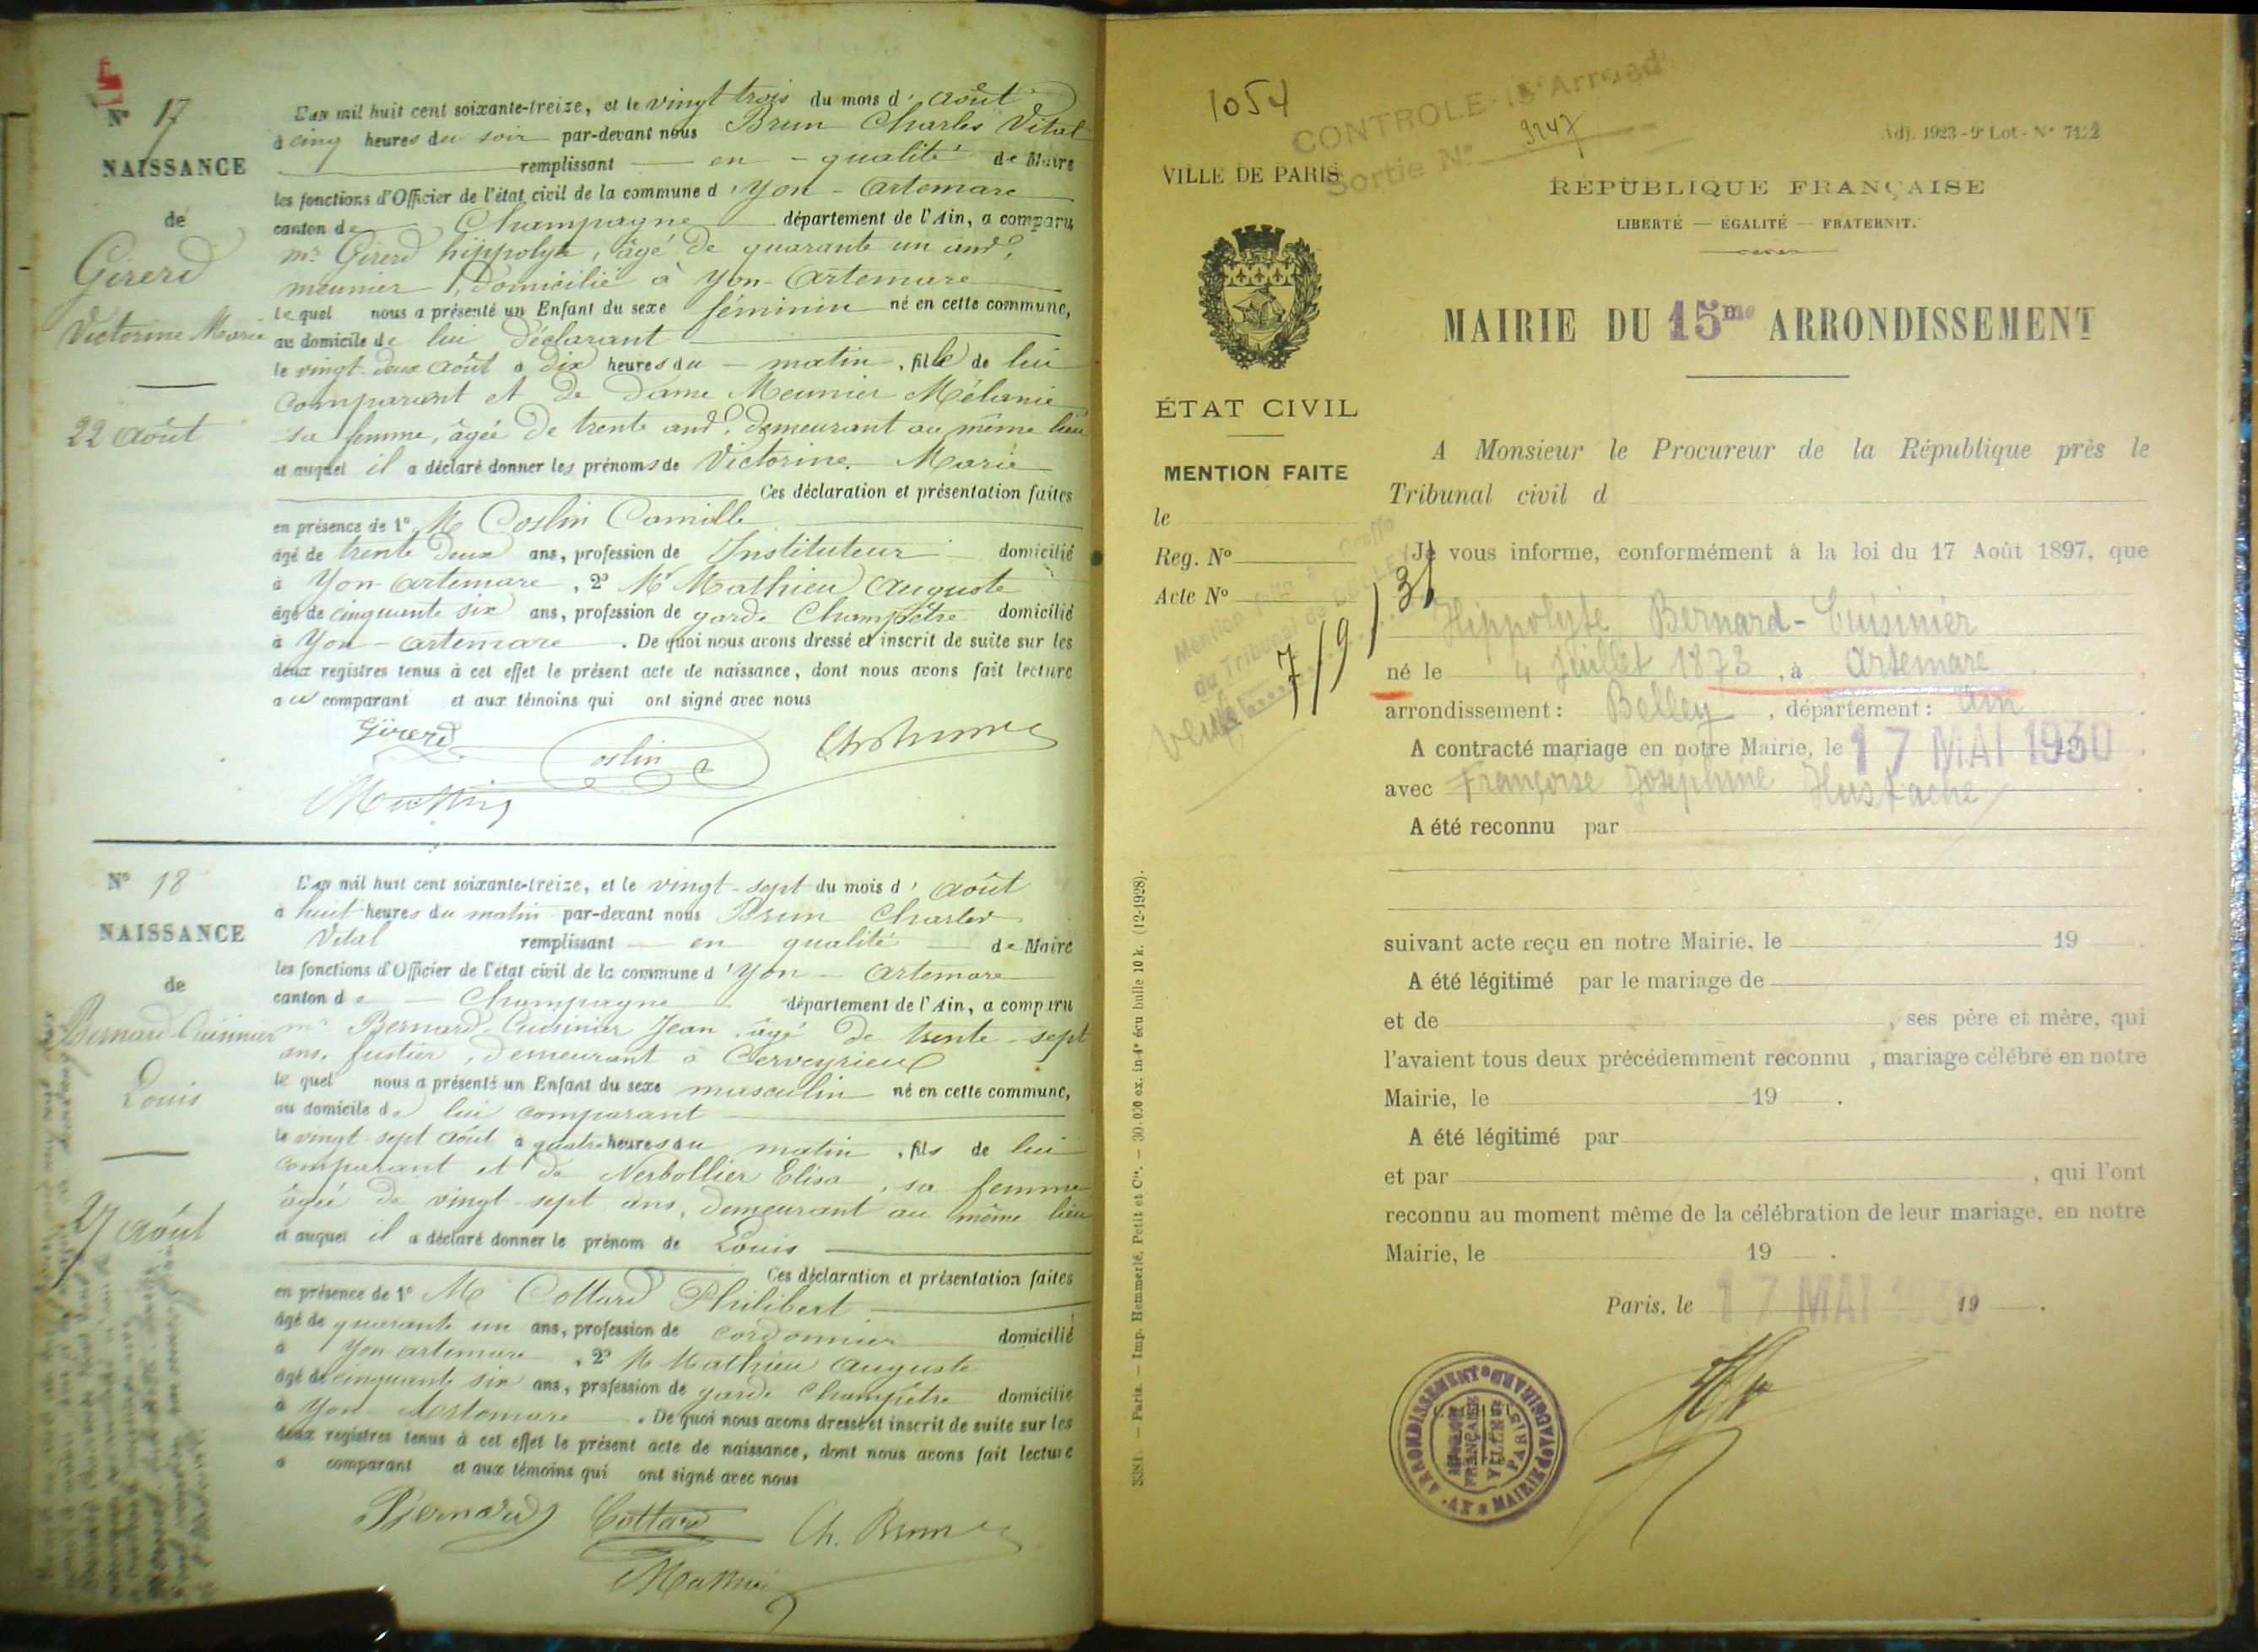 N° 17
NAISSANCE
de
Girerd
Victorine Marie
22 août
L'an mil huit cent soixante-treize, et le vingt trois du mois d' août
à cinq heures du soir par-devant nous Brun Charles Vital
remplissant en qualité de Maire
les fonctions d'Officier de l'état civil de la commune d'Yon-Artemare
canton de Champagne département de l'Ain, a comparu
mr Girerd hippolyte, âgé de quarante un ans,
meunier, domicilié à Yon-Artemare
lequel nous a présenté un Enfant du sexe féminin né en cette commune,
au domicile de lui déclarant
le vingt-deux août à dix heures du matin, fille de lui
comparant et de Dame Meunier Mélanie
sa femme, âgée de trente ans, demeurant au même lieu
et auquel il a déclaré donner les prénoms de Victorine Marie
Ces déclaration et présentation faites
en présence de 1° M Coslin Camille
âgé de trente deux ans, profession de Instituteur domicilié
à Yon-artemare, 2° Mr Mathieu Auguste
âgé de cinquante six ans, profession de garde Champêtre domicilié
à Yon-artemare. De quoi nous avons dressé et inscrit de suite sur les
deux registres tenus à cet effet le présent acte de naissance, dont nous avons fait lecture
au comparant et aux témoins qui ont signé avec nous
Girerd Coslin
N° 18
NAISSANCE
de
Bernard-Cuisinier
Louis
27 août
L'an mil huit cent soixante-treize, et le vingt-sept du mois d' août
à huit heures du matin par-devant nous Brun Charles
Vital remplissant en qualité de Maire
les fonctions d'Officier de l'état civil de la commune d'Yon-Artemare
canton de Champagne département de l'Ain, a comparu
mr Bernard-Cuisinier Jean âgé de trente-sept
ans, fustier, demeurant à Cerveyrieu
lequel nous a présenté un Enfant du sexe masculin né en cette commune,
au domicile de lui comparant
le vingt-sept août à quatre heures du matin, fils de lui
comparant et de Nerbollier Elisa, sa femme
âgée de vingt-sept ans, demeurant au même lieu
et auquel il a déclaré donner le prénom de Louis
Ces déclaration et présentation faites
en présence de 1° M Cottard Philibert
âgé de quarante un ans, profession de cordonnier domicilié
à Yon artemare, 2° M Mathieu Auguste
âgé de cinquante six ans, profession de garde champêtre domicilié
à Yon Artemare. De quoi nous avons dressé et inscrit de suite sur les
deux registres tenus à cet effet le présent acte de naissance, dont nous avons fait lecture
a comparant et aux témoins qui ont signé avec nous
Bernard Cottard Ch. Brun
1054
CONTROLE 15e Arrond
Sortie N° 9247
Adj. 1923 - 9e Lot - N° 7122
VILLE DE PARIS
RÉPUBLIQUE FRANÇAISE
LIBERTÉ — ÉGALITÉ — FRATERNITÉ
MAIRIE DU 15me ARRONDISSEMENT
ÉTAT CIVIL
MENTION FAITE
le
Reg. N°
Acte N°
Mention faite au Greffe
du Tribunal de BELLEY
A Monsieur le Procureur de la République près le
Tribunal civil d
Je vous informe, conformément à la loi du 17 Août 1897, que
Hippolyte Bernard-Cuisinier
né le 4 Juillet 1873, à Artemare
arrondissement : Belley, département : Ain
A contracté mariage en notre Mairie, le 17 MAI 1930
avec Françoise Joséphine Hustache
A été reconnu par
suivant acte reçu en notre Mairie, le 19 .
A été légitimé par le mariage de
et de , ses père et mère, qui
l'avaient tous deux précédemment reconnu , mariage célébré en notre
Mairie, le 19 .
A été légitimé par
et par , qui l'ont
reconnu au moment même de la célébration de leur mariage, en notre
Mairie, le 19 .
Paris, le 17 MAI 1930 19 .
MAIRIE DU XVe ARRONDISSEMENT
RÉPUBLIQUE FRANÇAISE
VILLE DE PARIS
3381. — Paris. — Imp. Hemmerlé, Petit et Cie. — 30.000 ex. in-4° écu bulle 10 k. (12-1928).